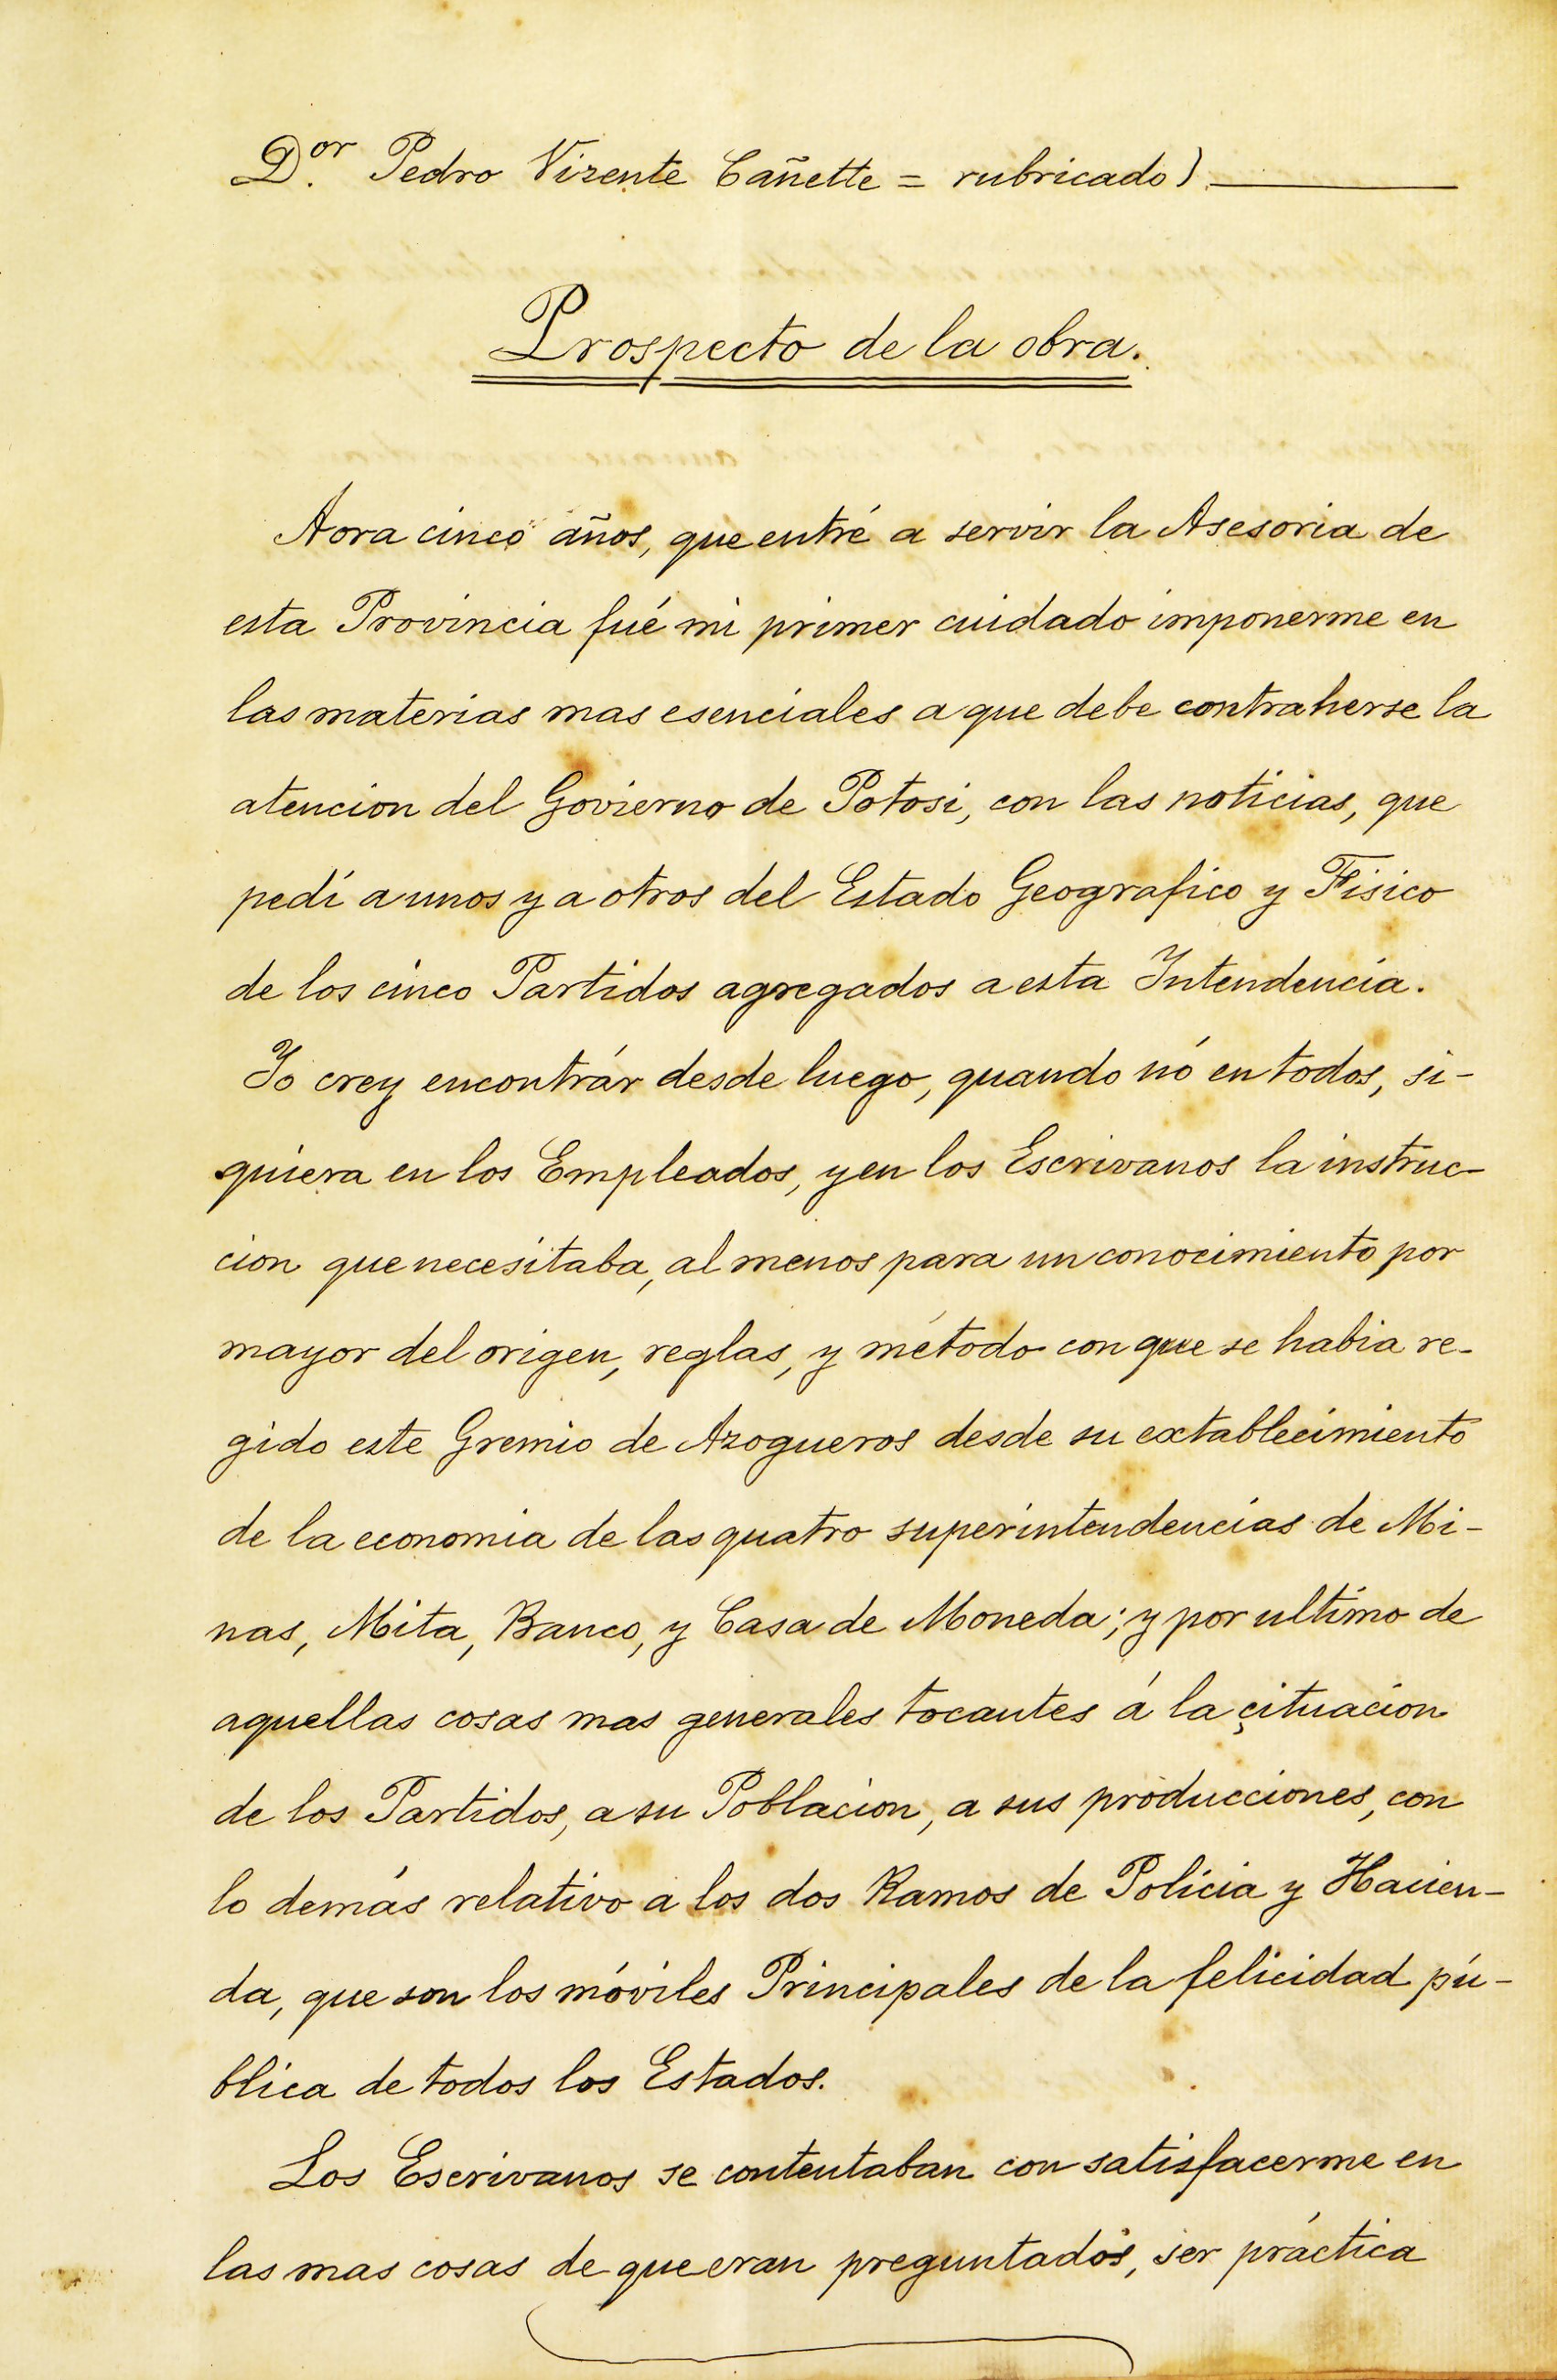 D.or Pedro Vizente Cañette = rubricado)
Prospecto de la obra.
Aora cinco años, que entré a servir la Asesoria de
esta Provincia fué mi primer cuidado imponerme en
las materias mas esenciales a que debe contraherse la
atencion del Govierno de Potosi, con las noticias, que
pedí a unos y a otros del Estado Geografico y Fisico
de los cinco Partidos agregados a esta Intendencia.
Yo crey encontrár desde luego, quando nó en todos, si-
quiera en los Empleados, y en los Escrivanos la instruc-
cion que necesitaba, al menos para un conocimiento por
mayor del origen, reglas, y método con que se habia re-
gido este Gremio de Azogueros desde su extablecimiento
de la economia de las quatro superintendencias de Mi-
nas, Mita, Banco, y Casa de Moneda; y por ultimo de
aquellas cosas mas generales tocantes á la çituacion
de los Partidos, a su Poblacion, a sus producciones, con
lo demás relativo a los dos Ramos de Policia y Hacien-
da, que son los móviles Principales de la felicidad pú-
blica de todos los Estados.
Los Escrivanos se contentaban con satisfacerme en
las mas cosas de que eran preguntados, ser práctica